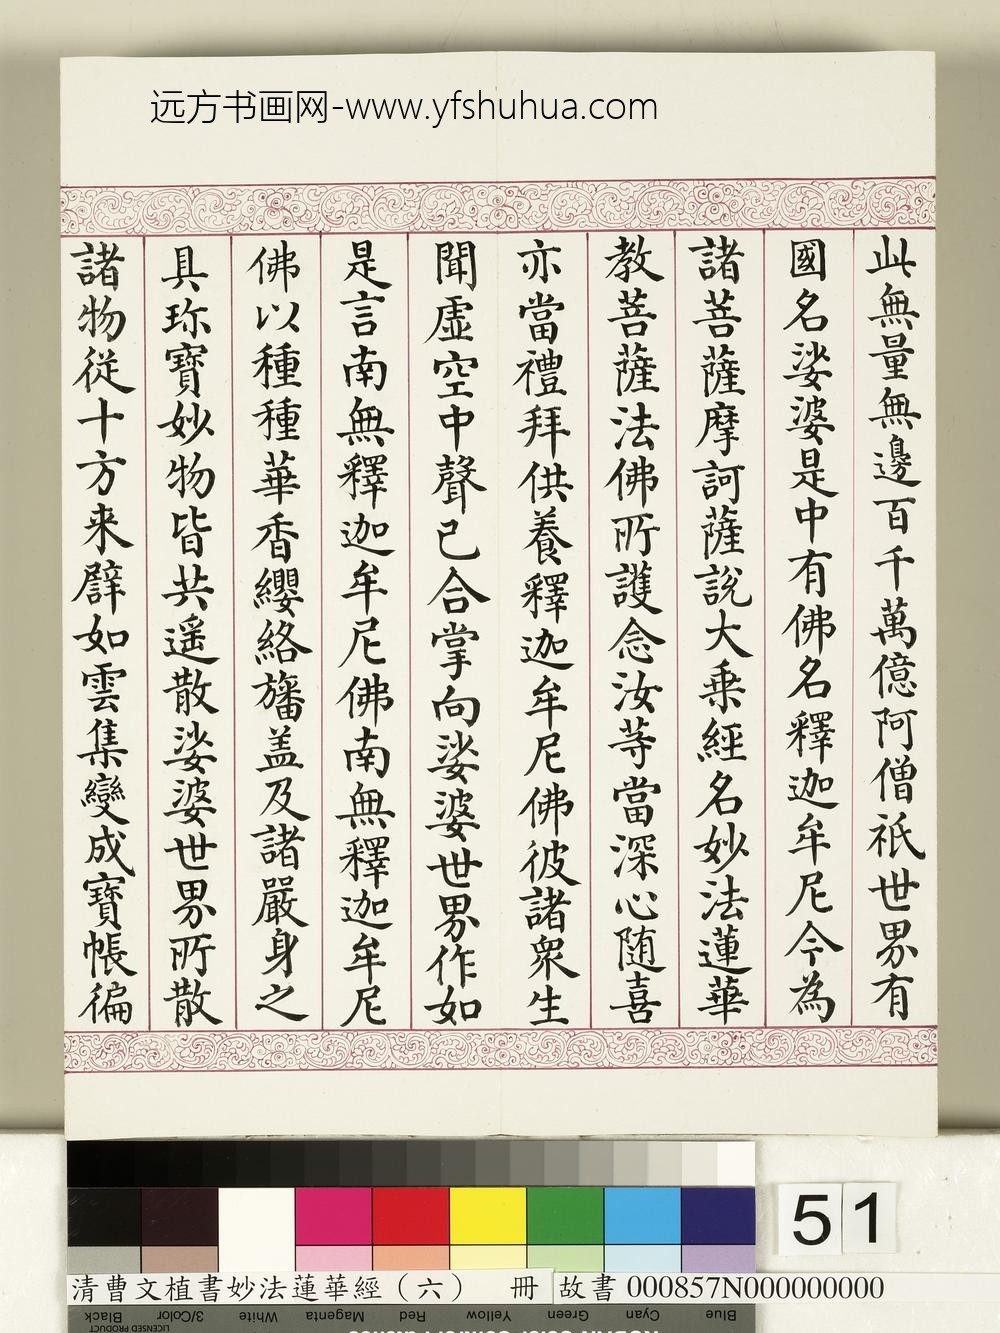 远方书画网-www.yfshuhua.com
此無量無邊百千萬億阿僧祇世界有
國名娑婆是中有佛名釋迦牟尼今為
諸菩薩摩訶薩說大乗經名妙法蓮華
教菩薩法佛所護念汝等當深心随喜
亦當禮拜供養釋迦牟尼佛彼諸衆生
聞虚空中聲已合掌向娑婆世界作如
是言南無釋迦牟尼佛南無釋迦牟尼
佛以種種華香纓絡旛盖及諸嚴身之
具珎寶妙物皆共遥散娑婆世界所散
諸物從十方来辟如雲集變成寶帳徧
51
清曹文植書妙法蓮華經（六） 冊 故書 000857N000000000
Blue Cyan Green Yellow Red Magenta White 3/Color Black
LICENSED PRODUCT